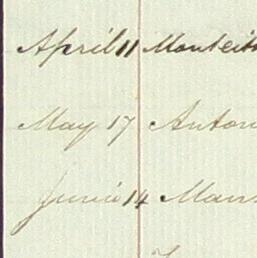 April 11 Monteith
May 17 Anton
Junio 14 Mans